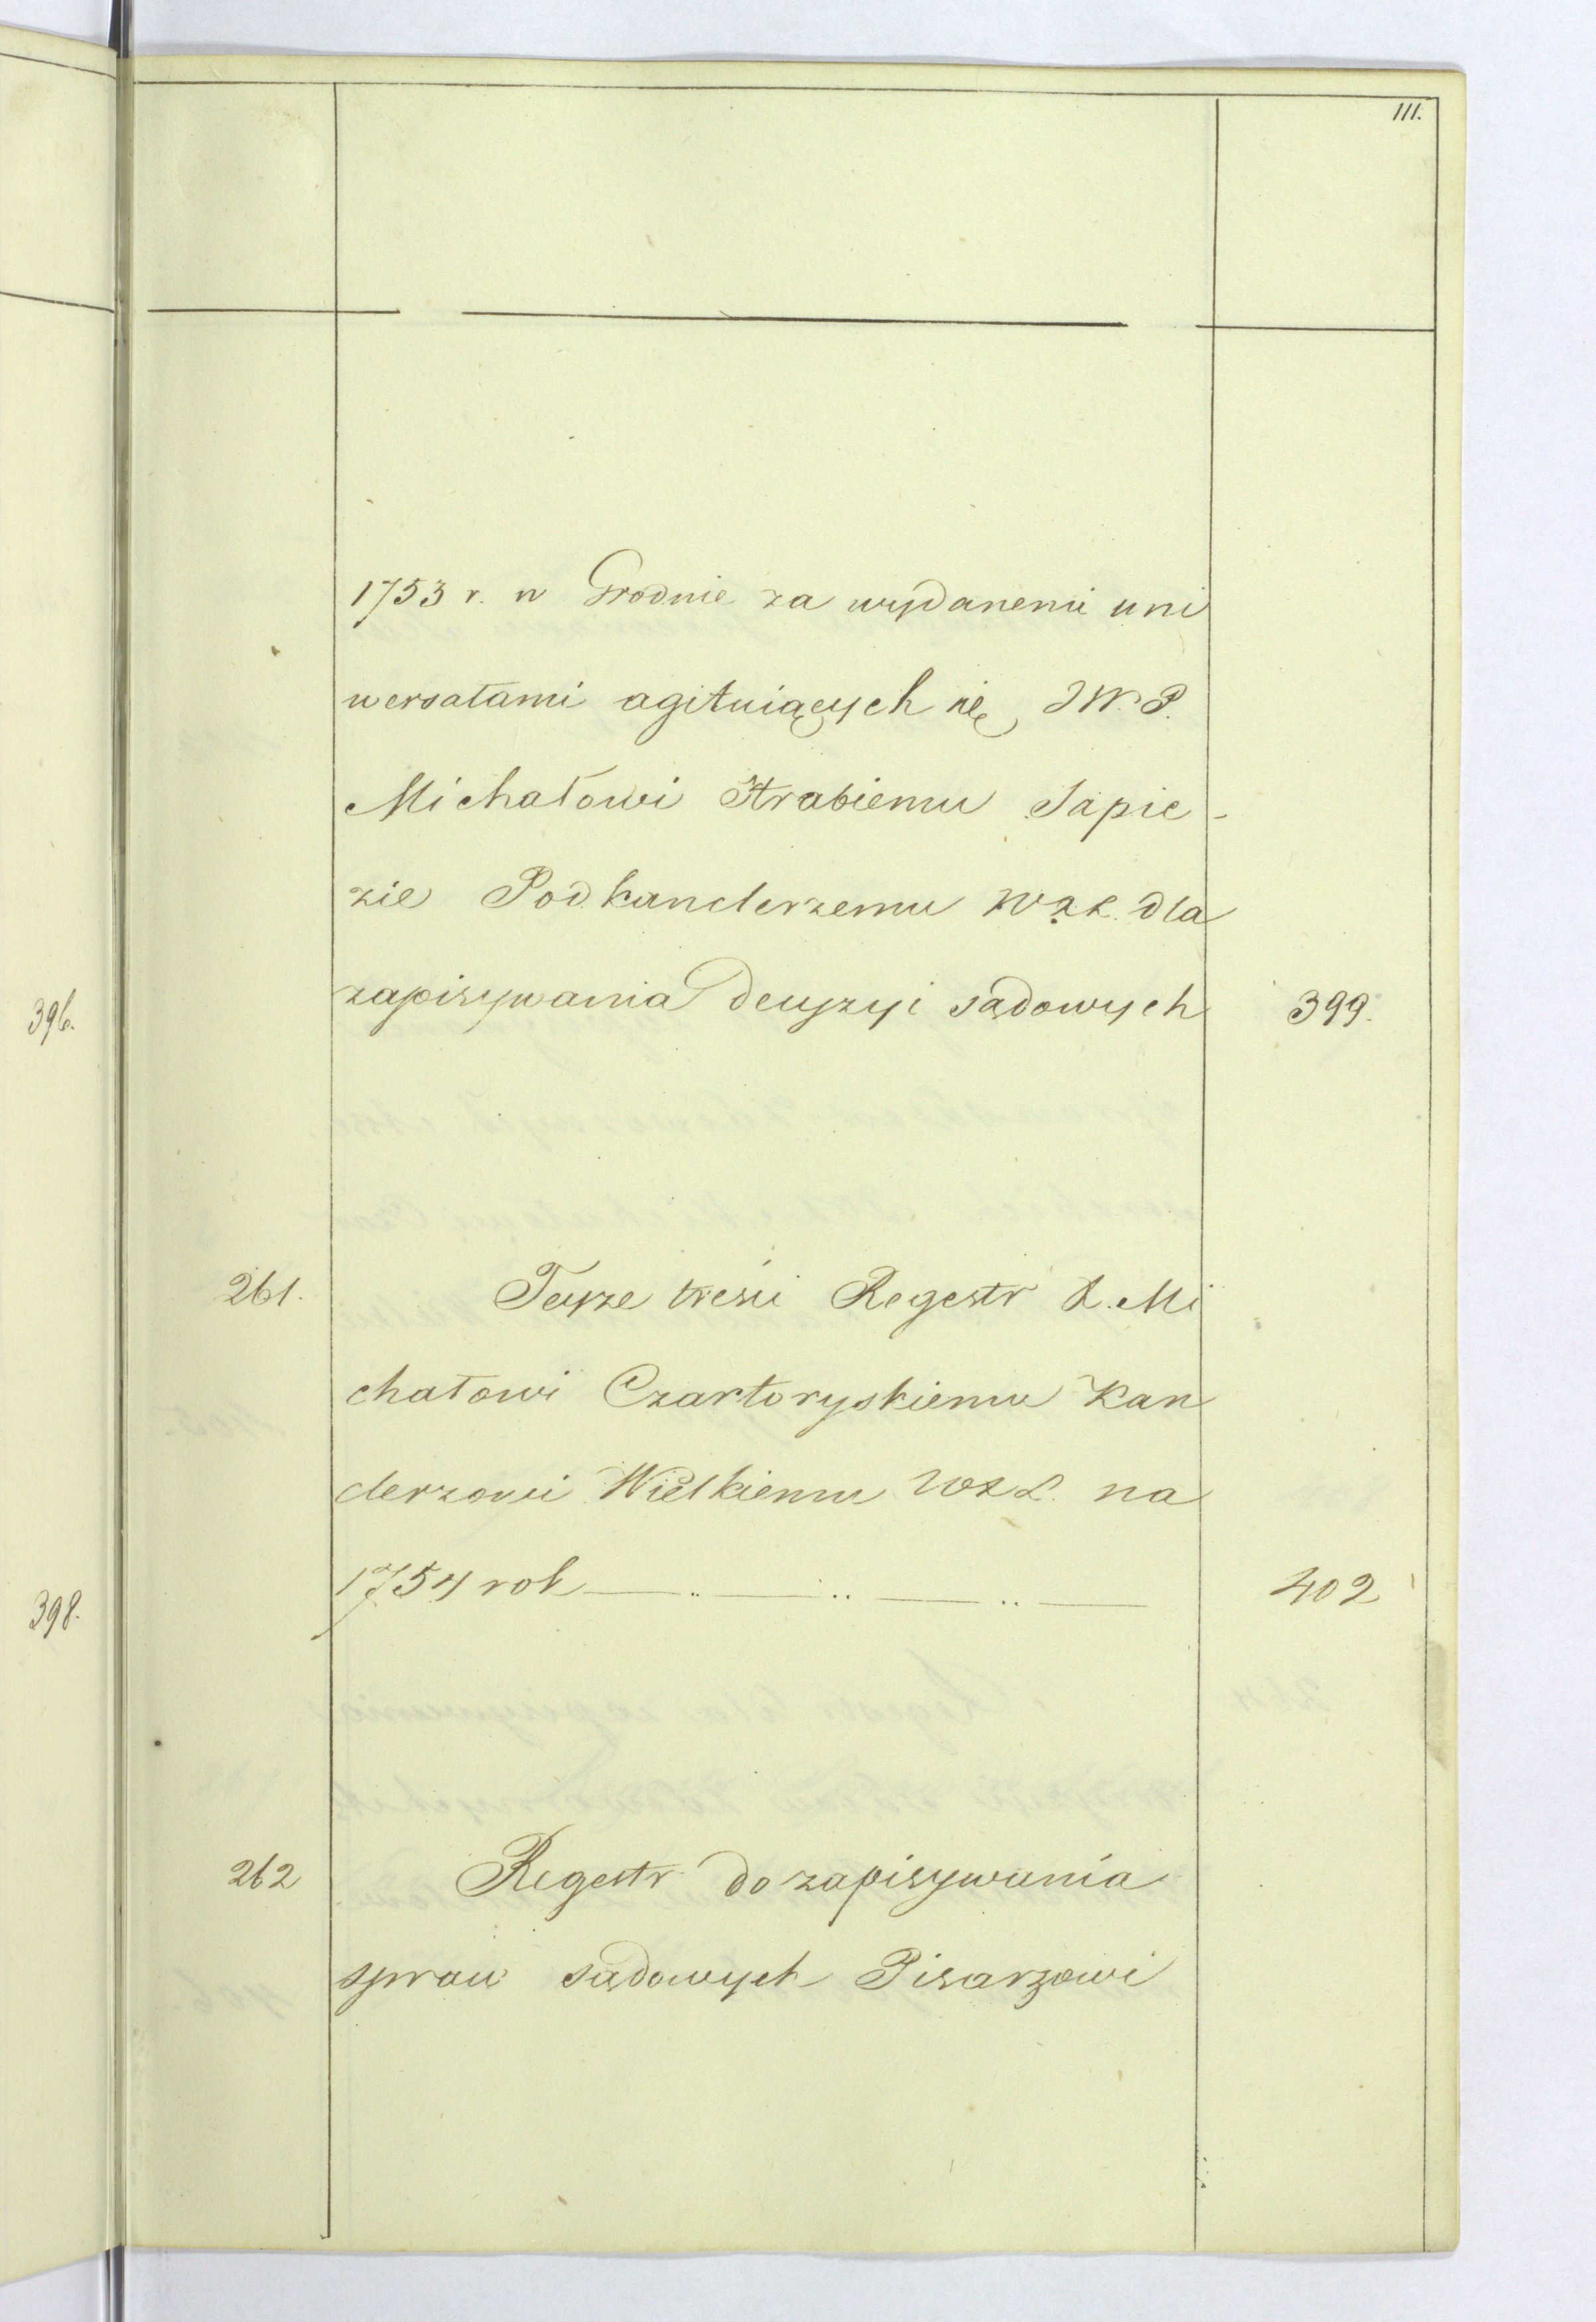 111.
1753 r. w Grodnie za wydanemi uni
wersałami agituiących się JW. P.
Michałowi Hrabiemu Sapie-
zie Podkanclerzemu WXL. dla
396.
zapisywania decyzyi sądowych 399.
261. Teyże treści Regestr X. Mi
chałowi Czartoryskiemu Kan
clerzowi Wielkiemu WXL. na
1754 rok 402
398.
262 Regestr do zapisywania
spraw sądowych Pisarzowi